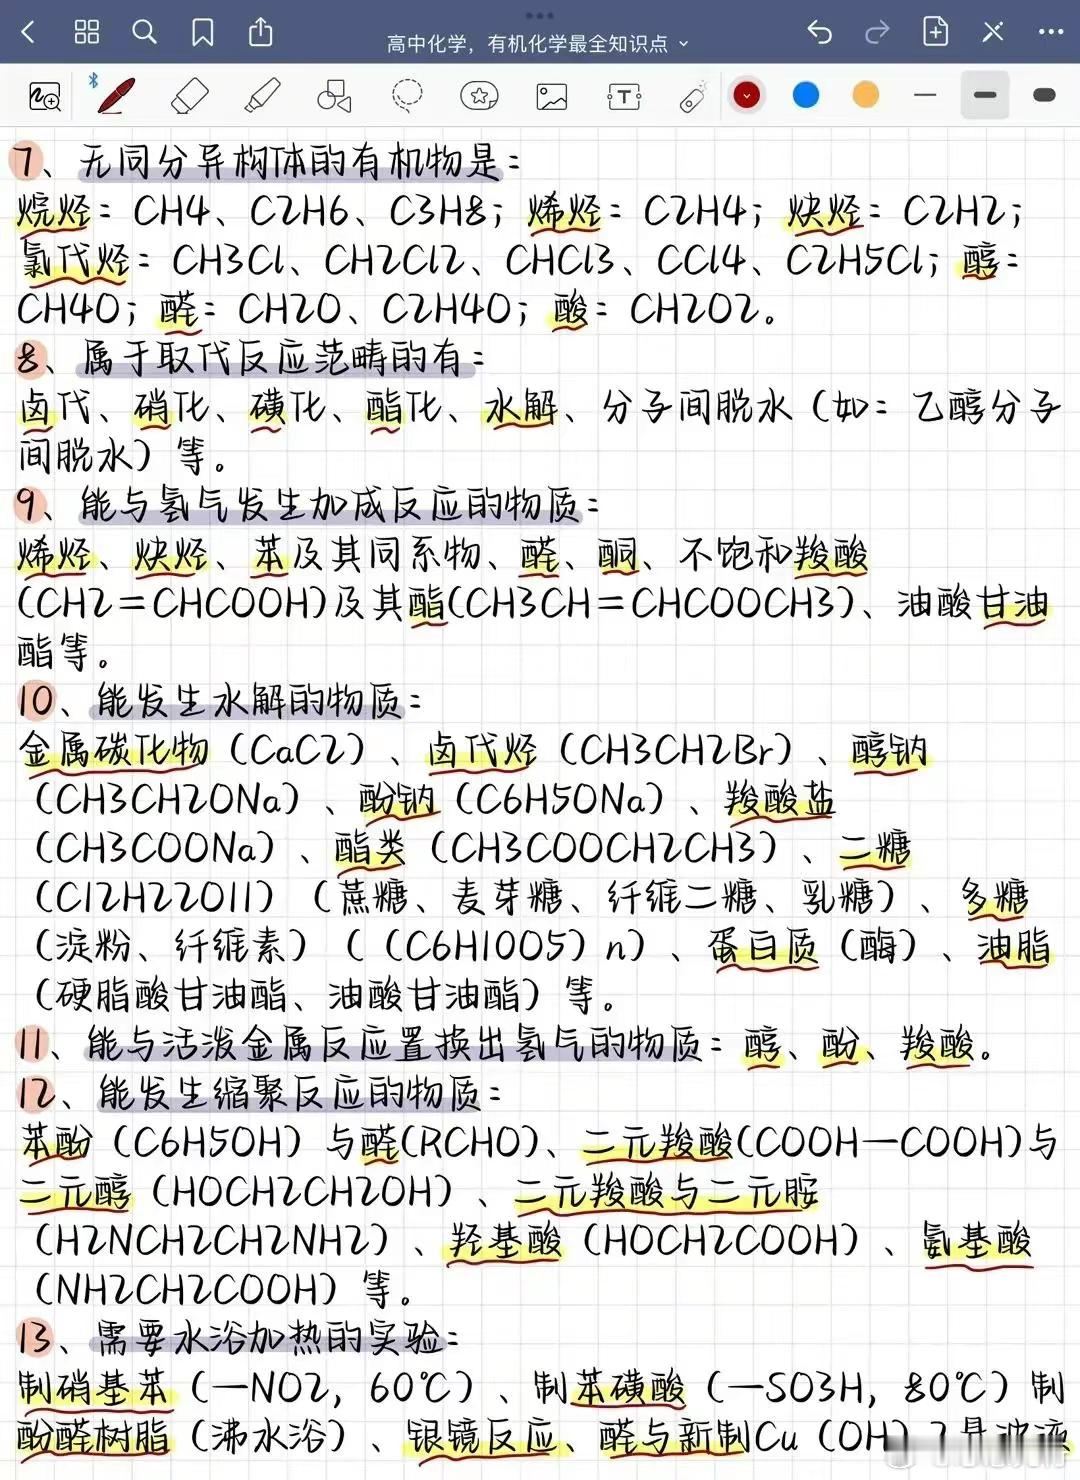 高中化学，有机化学最全知识点
7、无同分异构体的有机物是：
烷烃：CH4、C2H6、C3H8；烯烃：C2H4；炔烃：C2H2；
氯代烃：CH3Cl、CH2Cl2、CHCl3、CCl4、C2H5Cl；醇：
CH4O；醛：CH2O、C2H4O；酸：CH2O2。
8、属于取代反应范畴的有：
卤代、硝化、磺化、酯化、水解、分子间脱水（如：乙醇分子
间脱水）等。
9、能与氢气发生加成反应的物质：
烯烃、炔烃、苯及其同系物、醛、酮、不饱和羧酸
(CH2=CHCOOH)及其酯(CH3CH=CHCOOCH3)、油酸甘油
酯等。
10、能发生水解的物质：
金属碳化物（CaC2）、卤代烃（CH3CH2Br）、醇钠
（CH3CH2ONa）、酚钠（C6H5ONa）、羧酸盐
（CH3COONa）、酯类（CH3COOCH2CH3）、二糖
（C12H22O11）（蔗糖、麦芽糖、纤维二糖、乳糖）、多糖
（淀粉、纤维素）（（C6H10O5）n）、蛋白质（酶）、油脂
（硬脂酸甘油酯、油酸甘油酯）等。
11、能与活泼金属反应置换出氢气的物质：醇、酚、羧酸。
12、能发生缩聚反应的物质：
苯酚（C6H5OH）与醛(RCHO)、二元羧酸(COOH—COOH)与
二元醇（HOCH2CH2OH）、二元羧酸与二元胺
（H2NCH2CH2NH2）、羟基酸（HOCH2COOH）、氨基酸
（NH2CH2COOH）等。
13、需要水浴加热的实验：
制硝基苯（—NO2，60℃）、制苯磺酸（—SO3H，80℃）制
酚醛树脂（沸水浴）、银镜反应、醛与新制Cu（OH